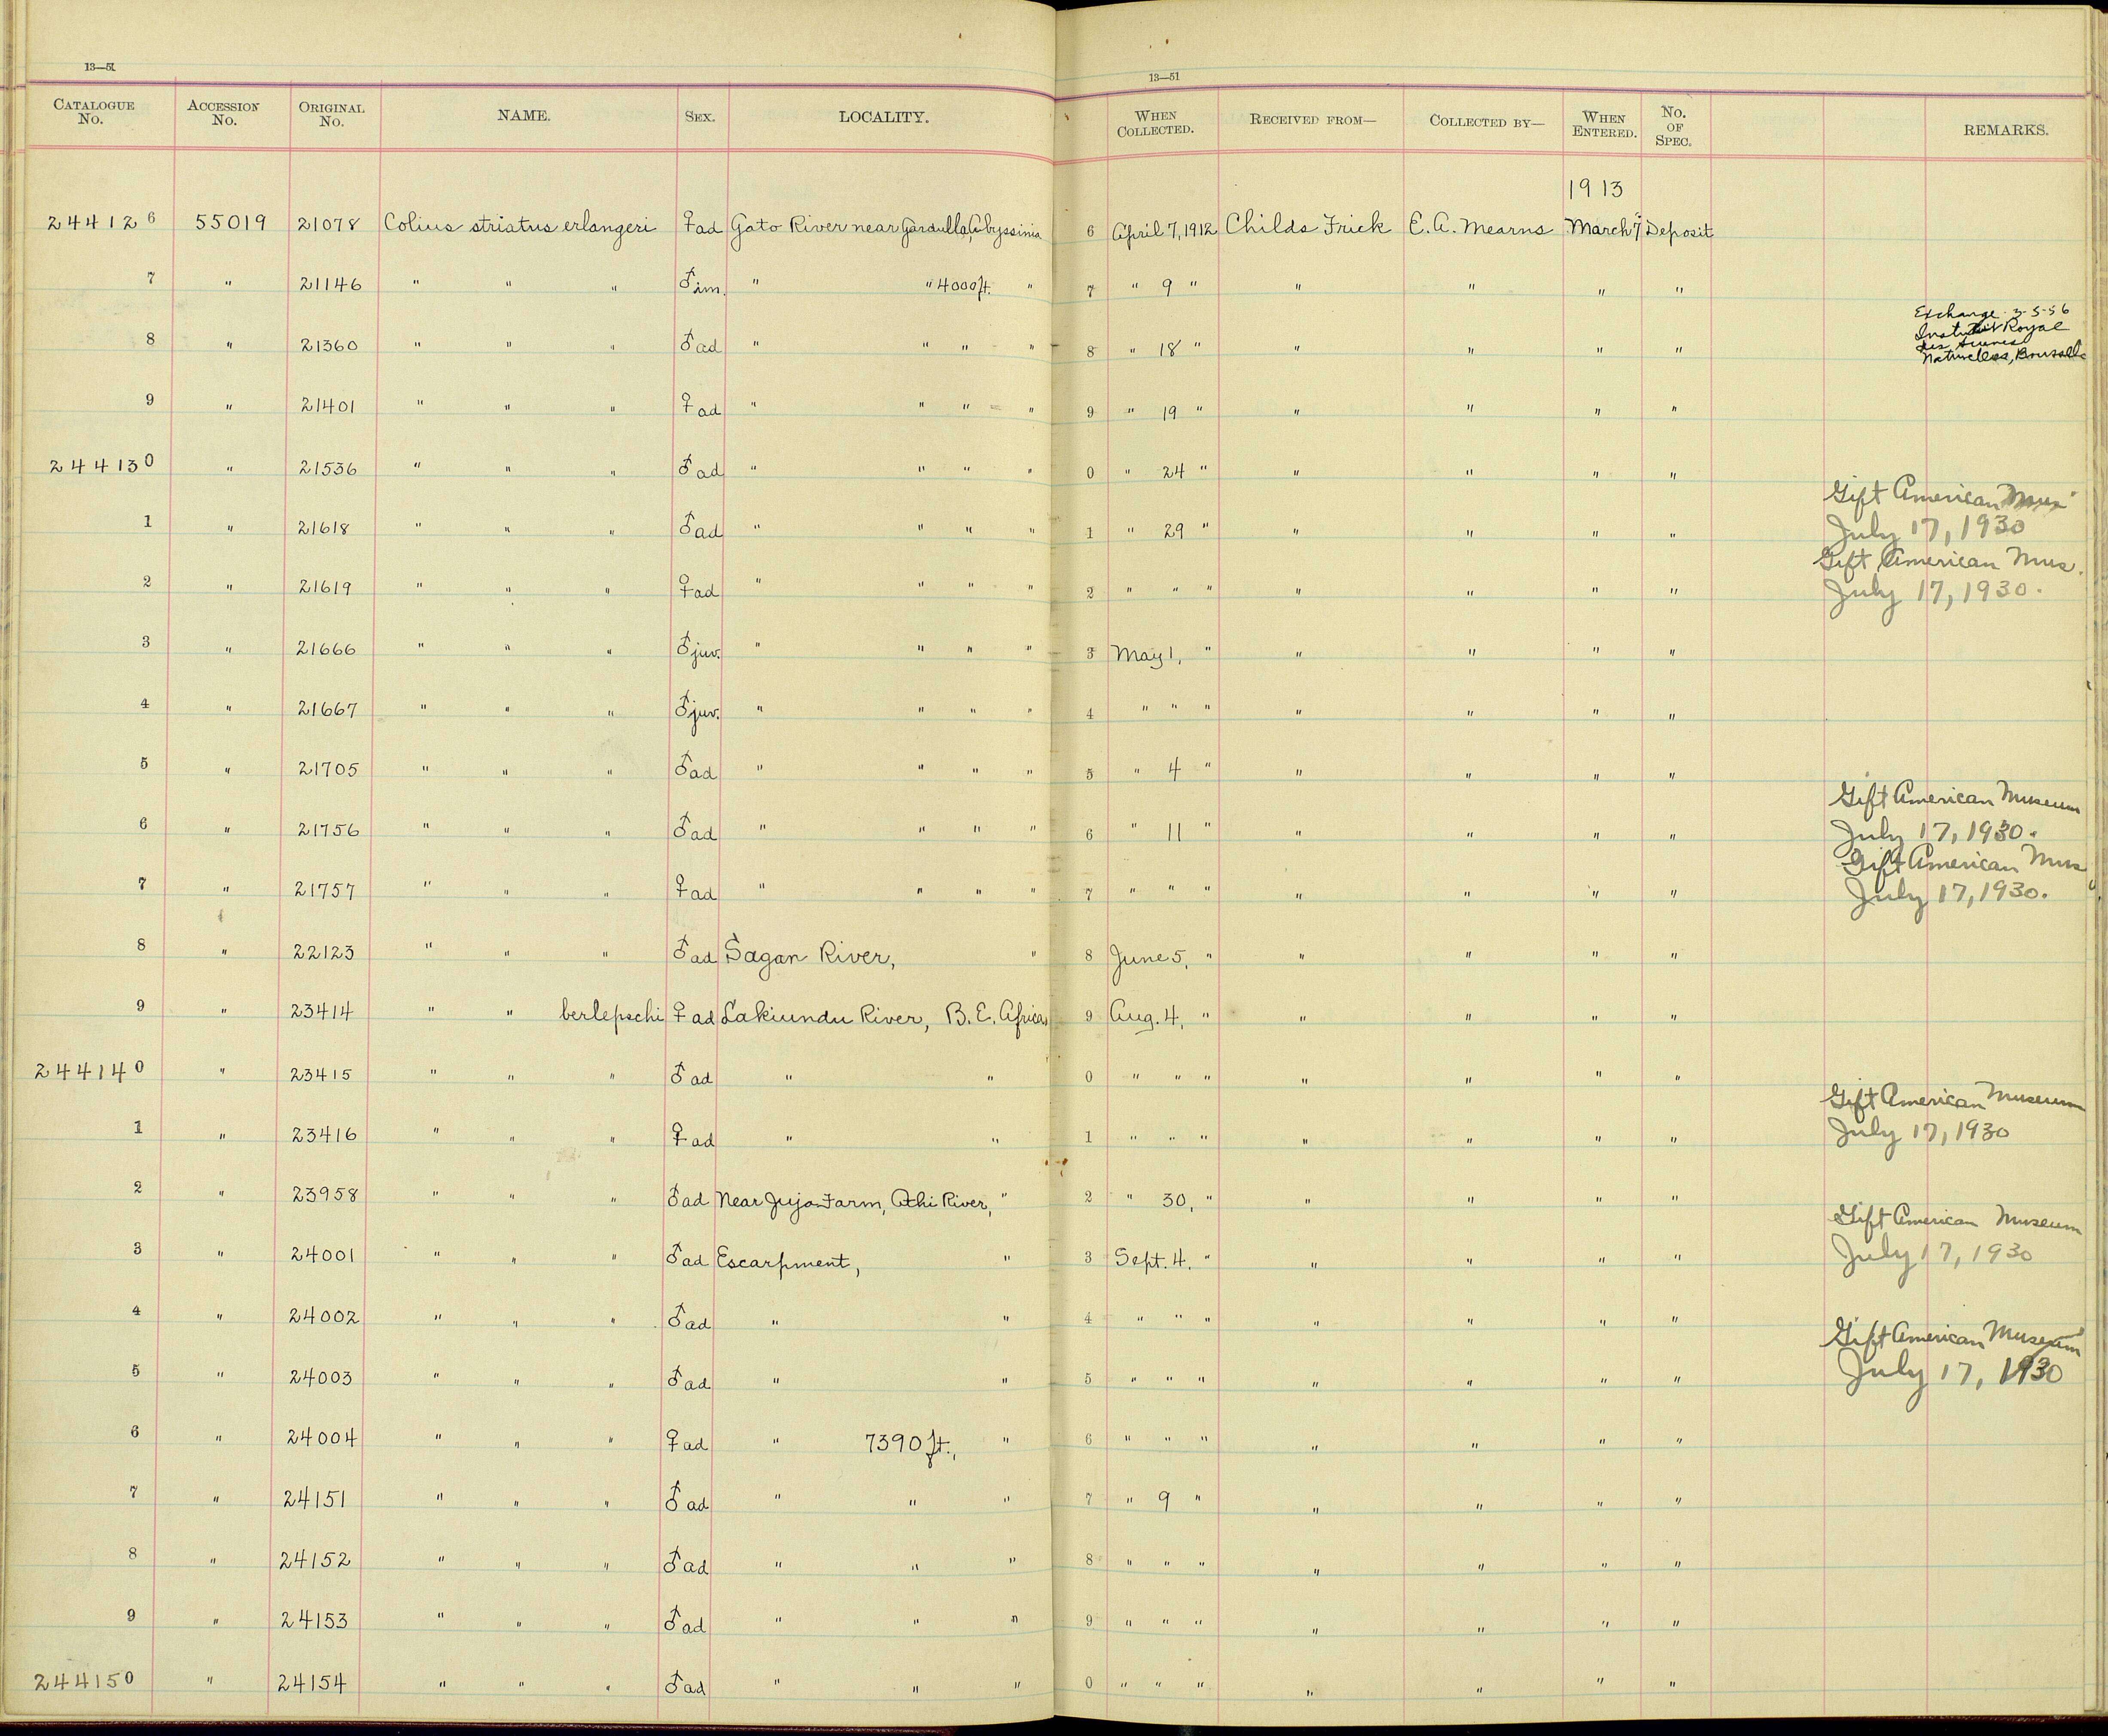 13—51
13—51
CATALOGUE No. ACCESSION No. ORIGINAL No. NAME. SEX. LOCALITY. WHEN COLLECTED. RECEIVED FROM— COLLECTED BY— WHEN ENTERED. No. OF SPEC. REMARKS.
1913
244126 55019 21078 Colius striatus erlangeri ♀ad Gato River near Gardulla, Abyssinia 6 April 7, 1912 Childs Frick E. A. Mearns March 7 Deposit
7 " 21146 " " " ♂im. " " 4000 ft. " 7 " 9 " " " " "
Exchange 3-5-56
Institut Royal
8 " 21360 " " " ♂ad " " " " 8 " 18 " " " " "
des Sciences
Naturelles, Brussels
9 " 21401 " " " ♀ad " " " " 9 " 19 " " " " "
244130 " 21536 " " " ♂ad " " " " 0 " 24 " " " " "
Gift American Mus
1 " 21618 " " " ♂ad " " " " 1 " 29 " " " " " July 17, 1930
Gift American Mus.
2 " 21619 " " " ♀ad " " " " 2 " " " " " " " July 17, 1930.
3 " 21666 " " " ♂juv. " " " " 3 May 1, " " " " "
4 " 21667 " " " ♂juv. " " " " 4 " " " " " " "
5 " 21705 " " " ♂ad " " " " 5 " 4 " " " " "
Gift American Museum
6 " 21756 " " " ♂ad " " " " 6 " 11 " " " " " July 17, 1930.
Gift American Mus
7 " 21757 " " " ♀ad " " " " 7 " " " " " " " July 17, 1930.
8 " 22123 " " " ♂ad Sagan River, " 8 June 5, " " " " "
9 " 23414 " " berlepschi ♀ad Lakiundu River, B. E. Africa 9 Aug. 4, " " " " "
244140 " 23415 " " " ♂ad " " 0 " " " " " " "
Gift American Museum
1 " 23416 " " " ♀ad " " 1 " " " " " " " July 17, 1930
2 " 23958 " " " ♂ad Near Juja Farm, Athi River, " 2 " 30, " " " " "
Gift American Museum
3 " 24001 " " " ♂ad Escarpment, " 3 Sept. 4. " " " " " July 17, 1930
4 " 24002 " " " ♂ad " " 4 " " " " " " "
Gift American Museum
5 " 24003 " " " ♂ad " " 5 " " " " " " " July 17, 1930
6 " 24004 " " " ♀ad " 7390 ft., " 6 " " " " " " "
7 " 24151 " " " ♂ad " " " 7 " 9 " " " " "
8 " 24152 " " " ♂ad " " " 8 " " " " " " "
9 " 24153 " " " ♂ad " " " 9 " " " " " " "
244150 " 24154 " " " ♂ad " " " 0 " " " " " " "